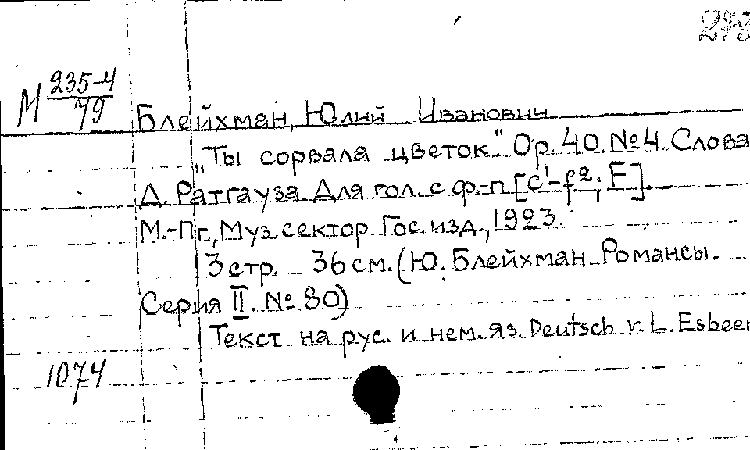 М 235-4
79
Блейхман, Юлий Иванович
„Ты сорвала цветок." Op. 40. №4. Слова
Д. Ратгауза. Для гол. с ф.-п. [c¹-f²; F].
М.-Пг., Муз. сектор Гос. изд., 1923.
3 стр. 36 см. (Ю. Блейхман. Романсы.
Серия II. № 30)
Текст на рус. и нем. яз. Deutsch v. L. Esbeer
1074